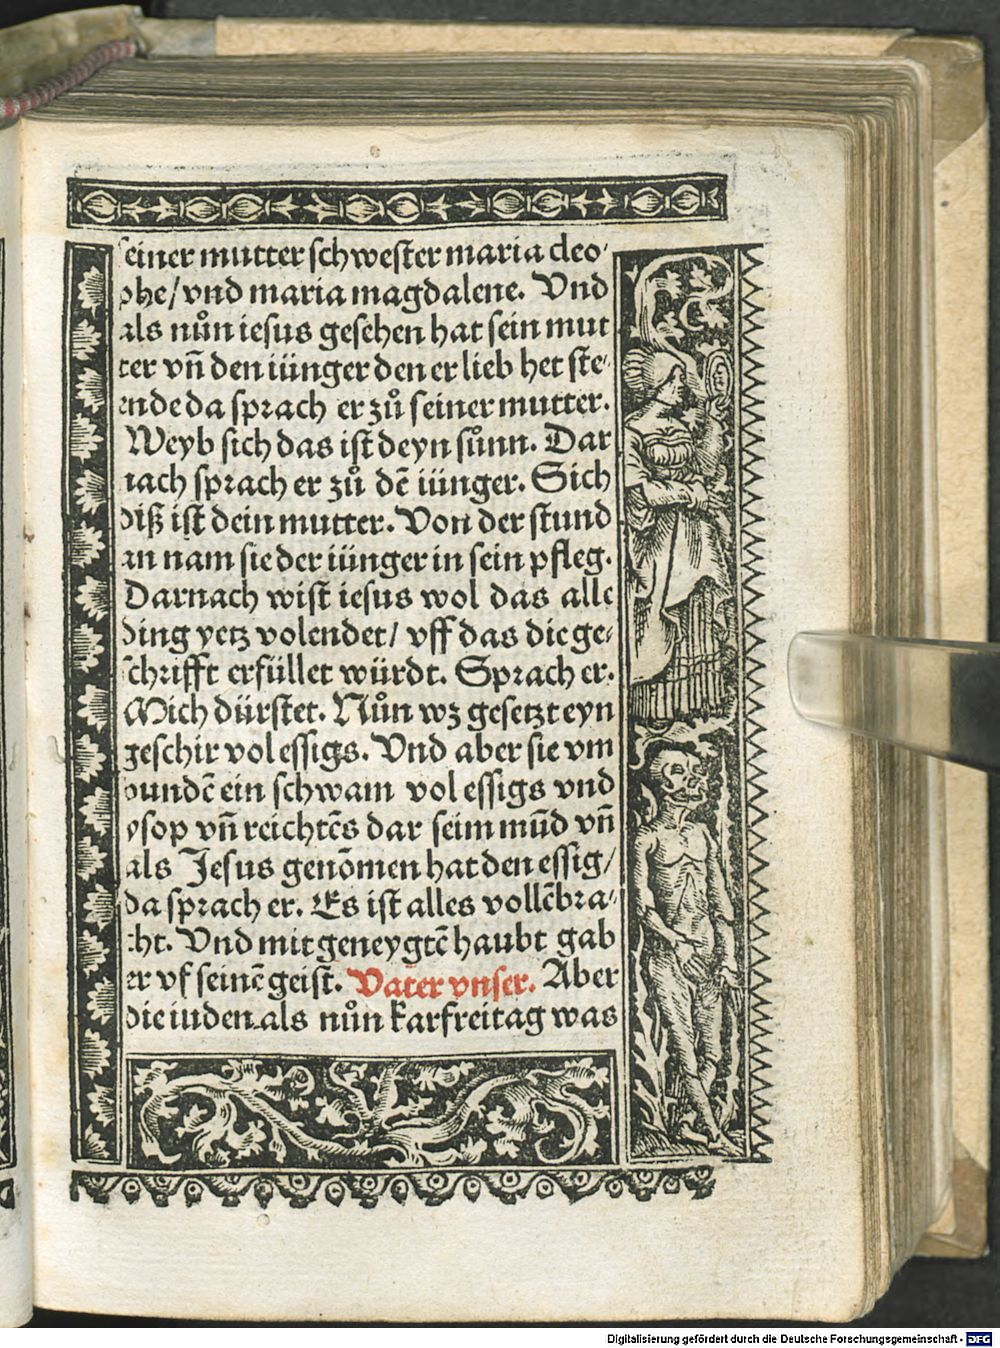 seiner mutter schwester maria cleo⸗
phe/ vnd maria magdalene. Vnd
als nůn iesus gesehen hat sein mut
ter vñ den iünger den er lieb het ste⸗
ende da sprach er zů seiner mutter.
Weyb sich das ist deyn sůnn. Dar
nach sprach er zů dē iünger. Sich
diß ist dein mutter. Von der stund
an nam sie der iünger in sein pfleg.
Darnach wist iesus wol das alle
ding yetz volendet/ vff das die ge⸗
schrifft erfüllet würdt. Sprach er.
Mich dürstet. Nůn wz gesetzt eyn
geschir vol essigs. Vnd aber sie vm
bundē ein schwam vol essigs vnd
ysop vñ reichtēs dar seim mūd vñ
als Jesus genōmen hat den essig/
da sprach er. Es ist alles vollēbra⸗
cht. Vnd mit geneygtē haubt gab
er vf seinē geist. Vater vnser. Aber
die iuden als nůn karfreitag was
Digitalisierung gefördert durch die Deutsche Forschungsgemeinschaft - DFG